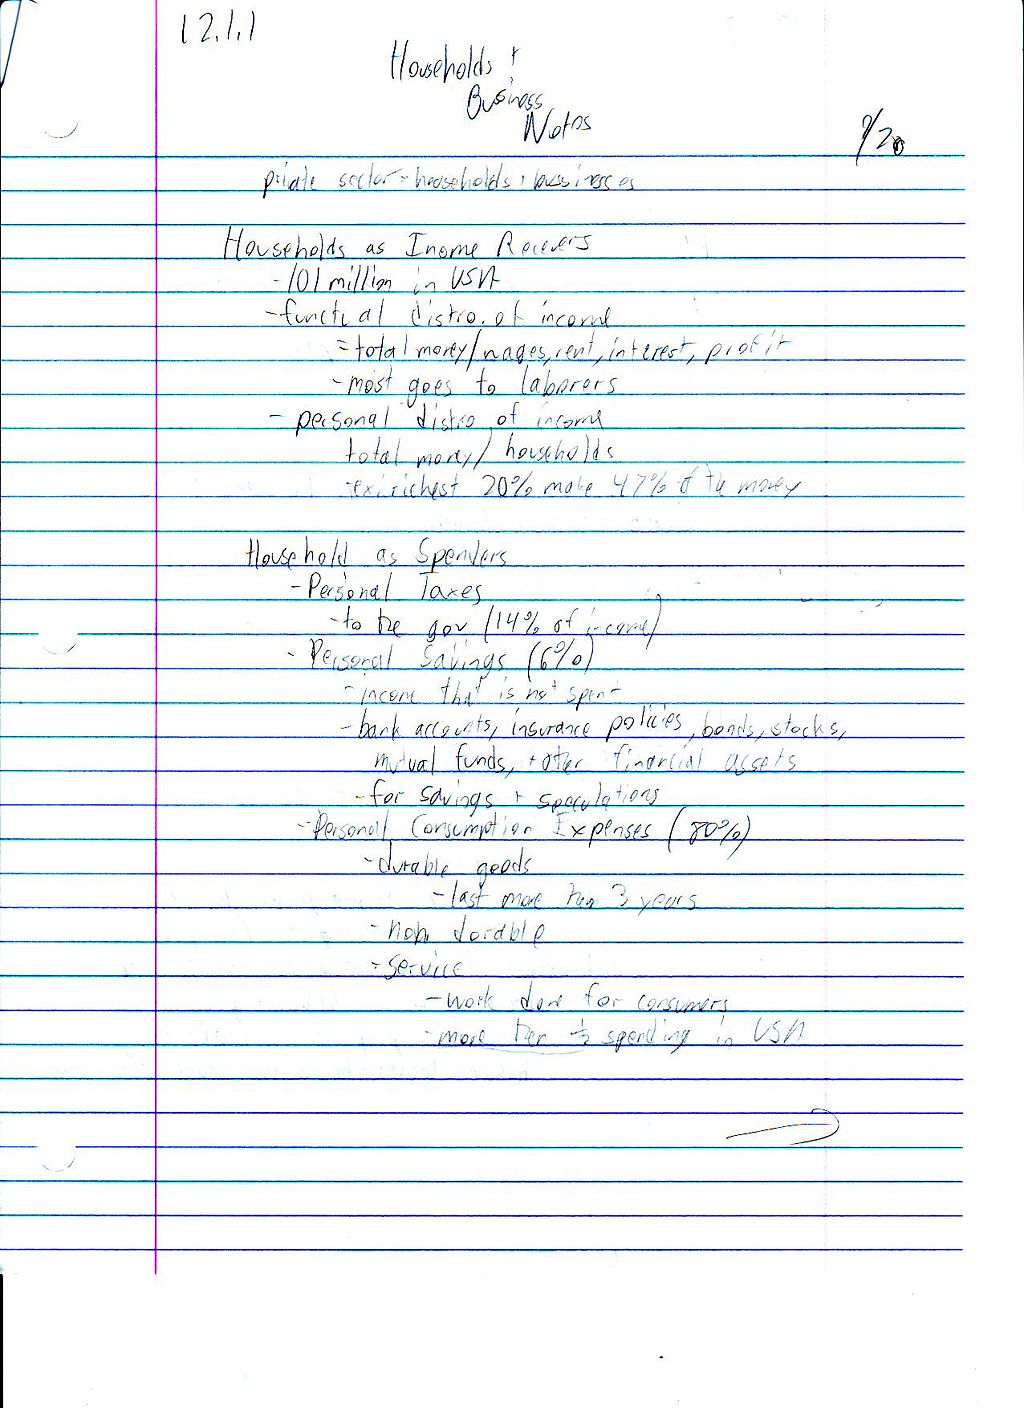 12.1.1
Households +
Business
Notes
9/20
private sector = households + businesses
Households as Inome Recievers
- 101 million in USA
- functual distro. of income
= total money/wages, rent, interest, profit
- most goes to laborers
- personal distro of income
total money/households
- ex: richest 20% make 47% of the money
Household as Spenders
- Personal Taxes
- to the gov (14% of income)
- Personal Savings (6%)
- income that is not spent
- bank accounts, insurance policies, bonds, stocks,
mutual funds, + other financial assets
- for savings + speculations
- Personal Consumption Expenses (80%)
- durable goods
- last more than 3 years
- non durable
- service
- work done for consumers
- more then ½ spending in USA